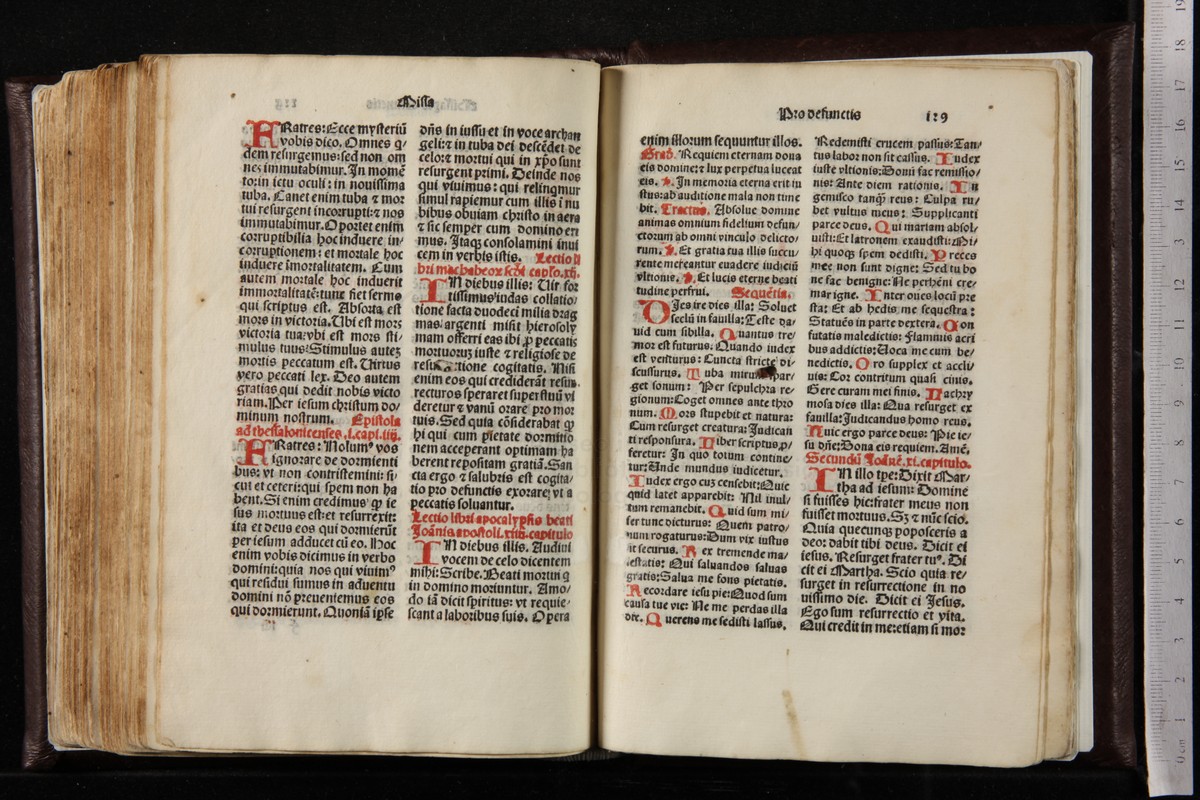 Missa
FRatres: Ecce mysteriū
vobis dico. Omnes q̇-
dem resurgemus: sed non om
nes immutabimur. In momē
to: in ictu oculi: in nouissima
tuba. Canet enim tuba ⁊ mor
tui resurgent incorrupti: ⁊ nos
immutabimur. Oportet enim
corruptibilia hoc induere in-
corruptionem: et mortale hoc
induere īmortalitatem. Cum
autem mortale hoc induerit
immortalitatē: tunc fiet sermo
qui scriptus est. Absorta est
mors in victoria. Ubi est mors
victoria tua: vbi est mors sti-
mulus tuus? Stimulus autez
mortis peccatum est. Uirtus
vero peccati lex. Deo autem
gratias qui dedit nobis victo
riam. Per iesum christum do-
minum nostrum. Epistola
ad thessalonicenses .i. capi. iiij.
FRatres: Nolumꝰ vos
ignorare de dormienti
bus: vt non contristemini: si-
cut et ceteri: qui spem non ha
bent. Si enim credimus ꝙ ie
sus mortuus est: et resurrexit:
ita et deus eos qui dormierūt
per iesum adducet cū eo. Hoc
enim vobis dicimus in verbo
domini: quia nos qui viuimꝰ
qui residui sumus in aduentu
domini nō preueniemus eos
qui dormierunt. Quoniā ipse
dn̄s in iussu et in voce archan
geli: ⁊ in tuba dei descēdet de
celo: ⁊ mortui qui in xp̄o sunt
resurgent primi. Deinde nos
qui viuimus: qui relinqmur
simul rapiemur cum illis ī nu
bibus obuiam christo in aera
⁊ sic semper cum domino eri
mus. Itaqꝫ consolamini inui
cem in verbis istis. Lectio li
bri machabeoꝝ scd̄i caplo. xij.
IN diebus illis: Uir for
tissimus iudas collatio-
tione facta duodeci milia drag
mas argenti misit hierosoly
mam offerri eas ibi ꝓ peccatis
mortuoruꝫ iuste ⁊ religiose de
tione cogitatis. Nisi
enim eos qui crediderāt resur-
recturos speraret superfluū vi
deretur ⁊ vanū orare pro mor
tuis. Sed quia cōsiderabat ꝙ
hi qui cum pietate dormitio
nem acceperant optimam ha
berent repositam gratiā. San
cta ergo ⁊ salubris est cogita-
tio pro defunctis exorare: vt a
peccatis soluantur.
Lectio libri apocalypsis beati
Joānis apostoli. xiiij. capitulo
IN diebus illis. Audiui
vocem de celo dicentem
mihi: Scribe. Beati mortui q̇
in domino moriuntur. Amo-
do iā dicit spiritus: vt requie-
scant a laboribus suis. Opera
Pro defunctis 129
enim illorum sequuntur illos.
Grad. Requiem eternam dona
eis domine: ⁊ lux perpetua luceat
eis. ℣. In memoria eterna erit iu
stus: ab auditione mala non time
bit. Tractus. Absolue domine
animas omnium fidelium defun-
ctorum ab omni vinculo delicto-
rum. ℣. Et gratia tua illis succu-
rente mereantur euadere iudiciū
vltionis. ℣. Et lucis eterne beati
tudine perfrui. Sequētia.
DIes ire dies illa: Soluet
seclū in fauilla: Teste da-
uid cum sibilla. Quantus tre-
mor est futurus. Quando iudex
est venturus: Cuncta stricte di-
scussurus. Tuba mirum spar-
get sonum: Per sepulchra re-
gionum: Coget omnes ante thro
num. Mors stupebit et natura:
Cum resurget creatura: Judican
ti responsura. Liber scriptus ꝓ-
feretur: In quo totum contine-
tur: Unde mundus iudicetur.
Iudex ergo cuꝫ censebit: Quic
quid latet apparebit: Nil inul-
tum remanebit. Quid sum mi-
ser tunc dicturus: Quem patro-
num rogaturus: Dum vix iustus
sit securus. Rex tremende ma-
iestatis: Qui saluandos saluas
gratis: Salua me fons pietatis.
Recordare iesu pie: Quod sum
causa tue vie: Ne me perdas illa
die. Querens me sedisti lassus.
Redemisti crucem passus: Tan-
tus labor non sit cassus. Iudex
iuste vltionis: Donū fac remissio-
nis: Ante diem rationis. In
gemisco tanqꝫ reus: Culpa ru-
bet vultus meus: Supplicanti
parce deus. Qui mariam absol-
uisti: Et latronem exaudisti: Mi-
hi quoqꝫ spem dedisti. Preces
mee non sunt digne: Sed tu bo
ne fac benigne: Ne perhēni cre-
mar igne. Inter oues locū pre
sta: Et ab hedis me sequestra:
Statuēs in parte dextera. Con
futatis maledictis: Flammis acri
bus addictis: Uoca me cum be-
nedictis. Oro supplex et accli-
uis: Cor contritum quasi cinis.
Gere curam mei finis. Lachry
mosa dies illa: Qua resurget ex
fauilla: Judicandus homo reus.
Huic ergo parce deus: Pie ie-
su dn̄e: Dona eis requiem. Amē.
Secundū Joānē. xi. capitulo.
IN illo tp̄e: Dixit Mar-
tha ad iesum: Domine
si fuisses hic: frater meus non
fuisset mortuus. Sꝫ ⁊ nūc scio.
Quia quecunqꝫ poposceris a
deo: dabit tibi deus. Dicit ei
iesus. Resurget frater tuꝰ. Di
cit ei Martha. Scio quia re-
surget in resurrectione in no
uissimo die. Dicit ei Jesus.
Ego sum resurrectio et vita.
Qui credit in me: etiam si mor